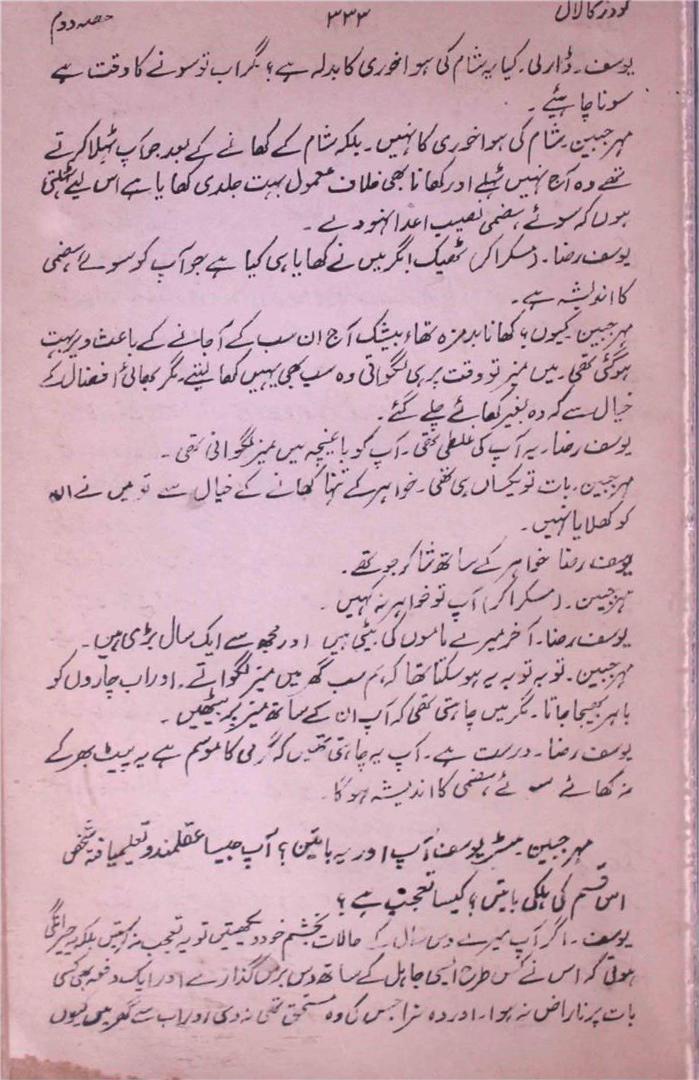 گودڑ کا لال ۳۳۳ حصہ دوم
یوسف۔ ڈارلی۔ کیا یہ شام کی ہوا خوری کا بدلہ ہے؟ مگر اب تو سونے کا وقت ہے
سونا چاہئیے۔
مہر جبین۔ شام کی ہوا خوری کا نہیں۔ بلکہ شام کے کھانے کے بعد جو آپ ٹہلا کرتے
تھے وہ آج نہیں ٹہلے اور کھانا بھی خلاف معمول بہت جلدی کھایا ہے اس لیے ٹہلتی
ہوں کہ سوئے ہضمی نصیب اعدا نہو دے۔
یوسف رضا۔ (مسکرا کر) ٹھیک! مگر میں نے کھایا ہی کیا ہے جو آپ کو سوئے ہضمی
کا اندیشہ ہے۔
مہر جبین۔ کیوں؟ کھانا بدمزہ تھا؟ بیشک آج ان سب کے آجانے کے باعث دیر بہت
ہوگئی تھی۔ میں میز تو وقت پر ہی لگواتی وہ سب بھی یہیں کھا لیتے۔ مگر بھائی افضال کے
خیال سے کہ وہ بغیر کھائے چلے گئے۔
یوسف رضا۔ یہ آپ کی غلطی تھی۔ آپ کو باغیچہ میں میز لگوانی تھی۔
مہر جبین۔ بات تو یکساں ہی تھی۔ خواہر کے تنہا کھانے کے خیال سے تو میں نے ان
کو کھلایا نہیں۔
یوسف رضا خواہر کے ساتھ شاکر جو تھے۔
مہر جبین۔ (مسکرا کر) آپ تو خواہر نہ کہیں۔
یوسف رضا۔ آخر میرے ماموں کی بیٹی ہیں اور مجھ سے ایک سال بڑی ہیں۔
مہر جبین۔ توبہ توبہ یہ ہو سکتا تھا کہ ہم سب گھر میں میز لگواتے۔ اور اب چاروں کو
باہر بھیجا جاتا۔ مگر میں چاہتی تھی کہ آپ ان کے ساتھ میز پر بیٹھیں۔
یوسف رضا۔ درست ہے۔ آپ یہ چاہتی تھیں کہ گرمی کا موسم ہے یہ پیٹ بھر کے
نہ کھائے سوئے ہضمی کا اندیشہ ہوگا۔
مہر جبین۔ مسٹر یوسف آپ اور یہ باتیں؟ آپ جیسا عقلمند و تعلیمیافتہ شخص
اس قسم کی ہلکی باتیں؟ کیسا تعجب ہے؟
یوسف۔ اگر آپ میرے دس سال کے حالات بچشم خود دیکھتیں تو یہ تعجب نہ کرتیں بلکہ یہ حیرانگی
ہوتی کہ اس نے کس طرح ایسی جاہل کے ساتھ دس برس گذارے اور ایک دفعہ بھی کسی
بات پر ناراض نہ ہوا۔ اور وہ سزا جس کی وہ مستحق تھی نہ دی اور اب سے گھر میں کیوں